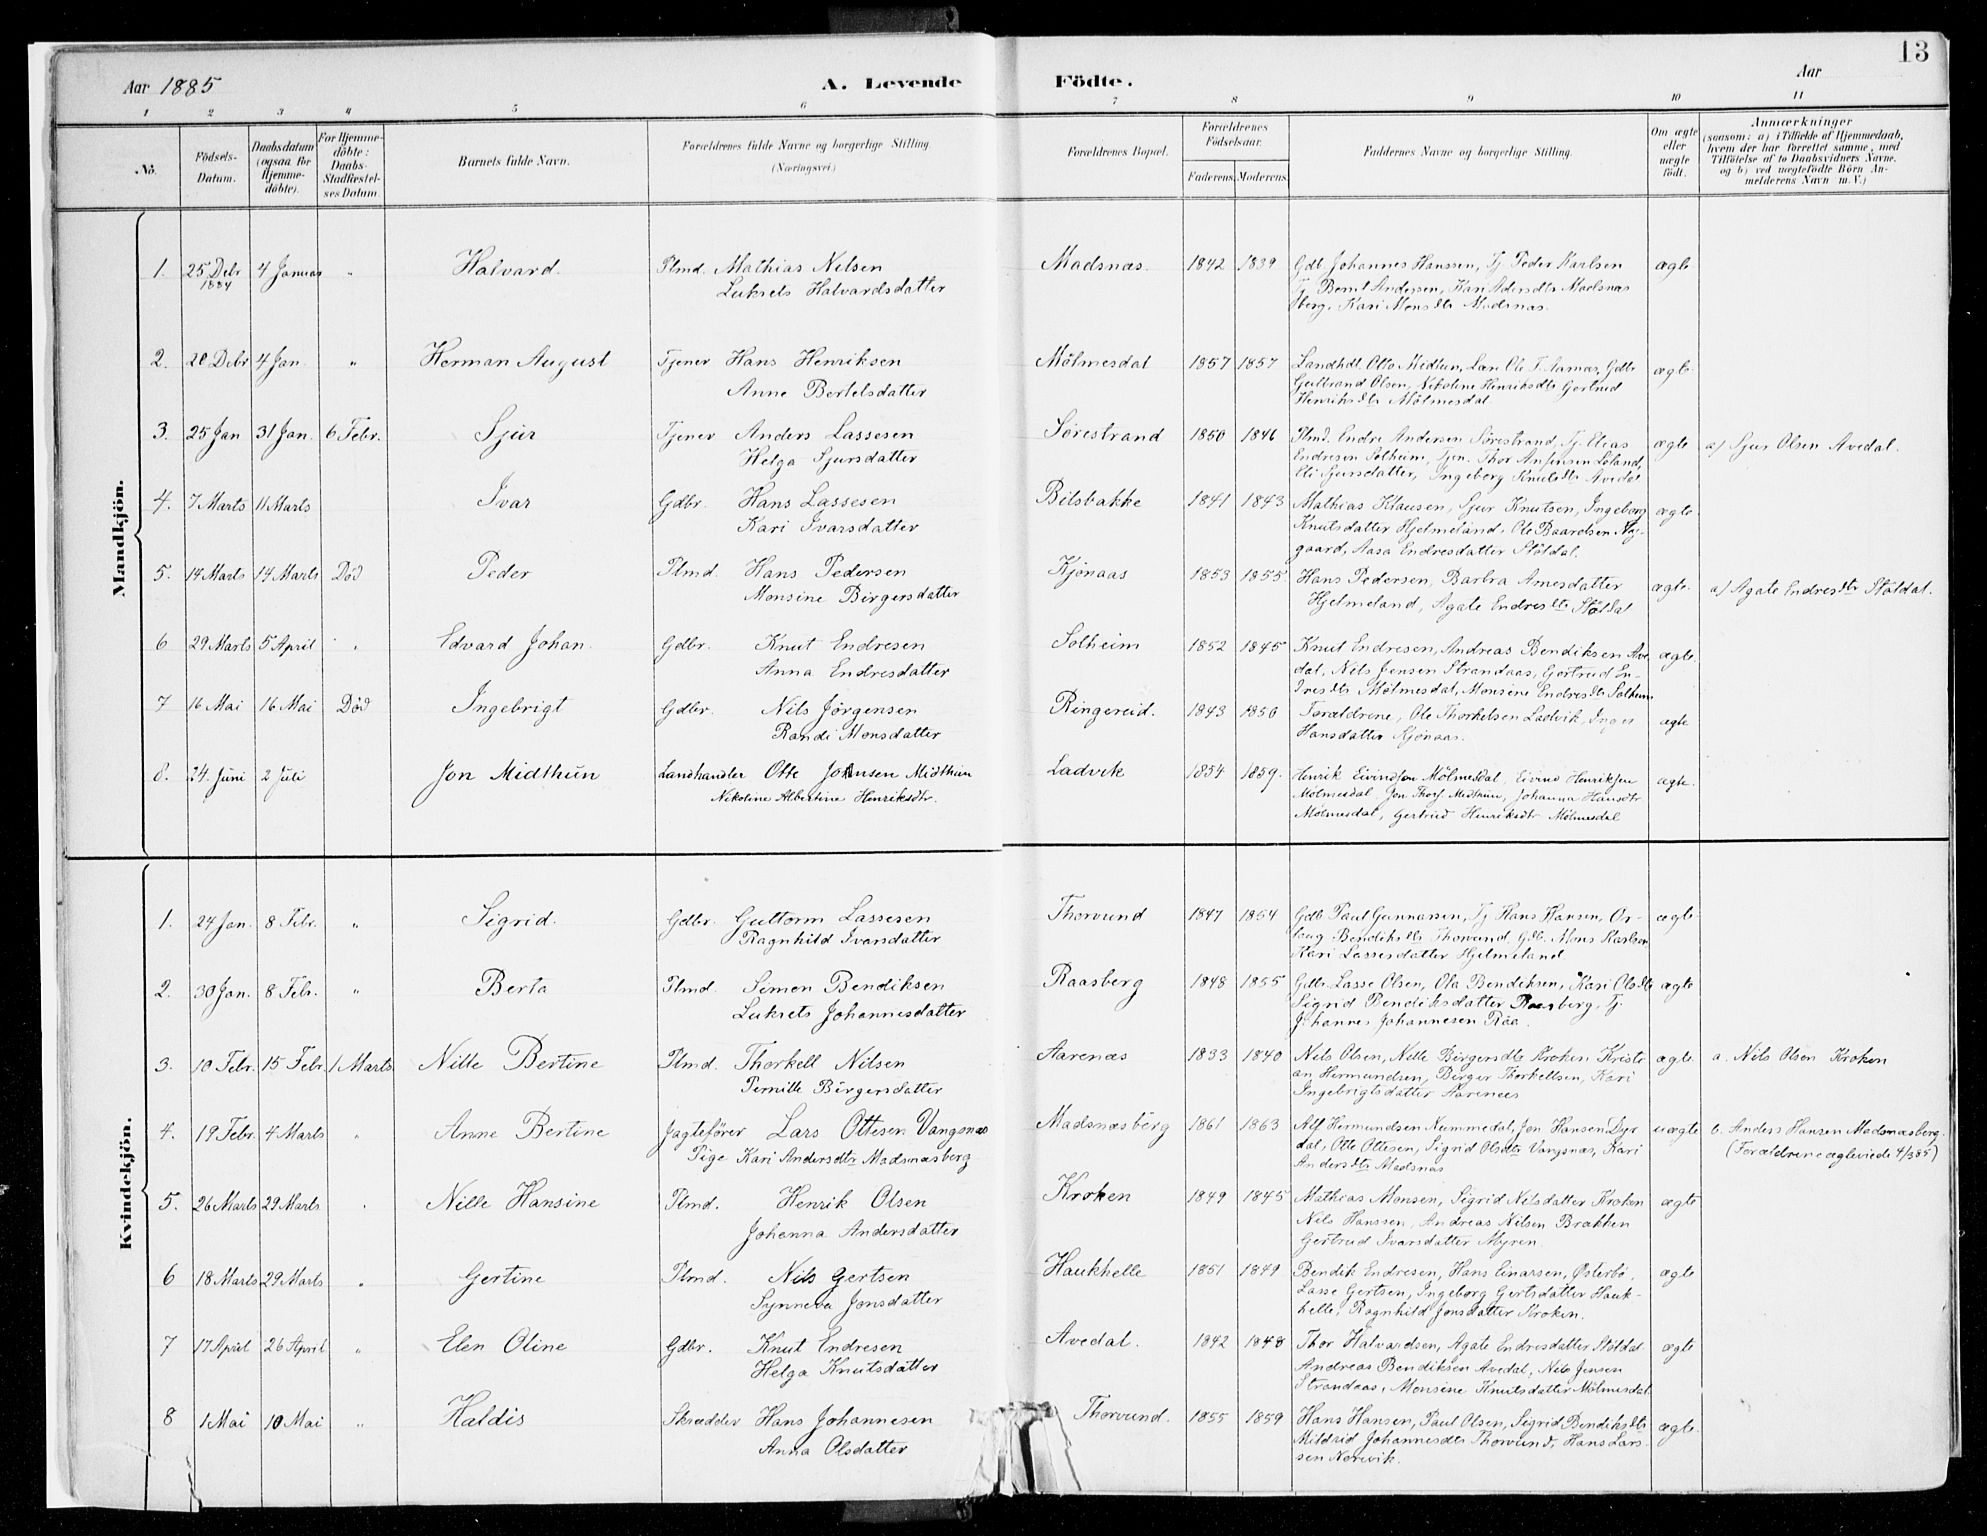 13
Aar 1885
A. Levende Födte.
Aar
1 2 3 4 5 6 7 8 9 10 11
No.
Födsels-Datum.
Daabsdatum (ogsaa for Hjemme-döbte).
For Hjemme-döbte: Daabs-Stadfæstel-ses Datum.
Barnets fulde Navn.
Forældrenes fulde Navne og borgerlige Stilling. (Næringsvei.)
Forældrenes Bopæl.
Forældrenes Födselsaar.
Faderens. Moderens.
Faddernes Navne og borgerlige Stilling.
Om ægte eller uægte födt.
Anmærkninger
(saasom: a) i Tilfælde af Hjemmedaab, hvem der har forrettet samme, med Tilföielse af to Daabsvidners Navne, og b) ved uægtefödte Börn An-melderens Navn m. V.)
Mandkjön.
1. 25 Debr 4 Januar " Halvard. Plmd. Mathias Nilsen Madsnæs. 1842 1839 Gdb. Johannes Hanssen, Tj. Peder Karlsen ægte
1884 Luksets Halvardsdatter Tj. Bernt Andersen, Kari Madsnæs
berg, Kari Monsdtr Madsnæs.
2. 20 Debr 4 Jan. " Herman August Tjener Hans Henriksen Mölmesdal 1857 1857 Landhdl. Otto Midtun, Ole T. Aarnæs, Gdbr ægte
Anne Bertelsdatter Gulbrand Olsen, Nikoline Henriksdtr Gertrud
Henriksdtr Mölmesdal
3. 25 Jan 31 Jan. 6 Febr. Sjur Tjener Anders Lassesen Sörestrand 1850 1846 Plmd. Endre Andersen Sörestrand, Tj. Elias ægte a) Sjur Olsen Avedal.
Helga Sjursdatter Endresen Solheim, Thor Ansensen Loland,
Eli Sjursdatter, Ingeborg Knutsdtr Avedal
4. 7 Marts 11 Marts Ivar Gdbr. Hans Lassesen Bilsbakke 1841 1843 Mathias Klausen, Sjur Knutsen, Ingeborg ægte
Kari Ivarsdatter Knutsdatter Hjelmeland, Ole Baardsen Ny-
gaard, Aasa Endresdatter Stöldal.
5. 14 Marts 14 Marts Död Peder Plmd. Hans Pedersen Kjönaas 1853 1855 Hans Pedersen, Barbra Arnesdatter ægte. a) Agate Endresdtr Stöldal.
Monsine Birgersdatter Hjelmeland, Agate Endresdtr Stöldal
6 29 Marts 5 April " Edvard Johan. Gdbr. Knut Endresen Solheim 1852 1845 Knut Endresen, Andreas Bendiksen Ave ægte.
Anna Endresdatter dal, Nils Jensen Strandaas, Gertrud En-
dresdtr Mölmesdal, Monsine Endresdtr Solheim
7 16 Mai 16 Mai Död Ingebrigt Gdbr. Nils Jörgensen Ringereid. 1843 1850 Forældrene, Ole Thorkelsen Ladvik, Inger ægte
Randi Monsdatter Hansdatter Kjönaas.
8. 24. Juni 2 Juli Jon Midthun Landhandler Otto Johnsen Midthun Ladvik 1854 1859. Henrik Eivindsen Mölmesdal, Eivind Henriksen ægte.
Nikoline Albertine Henriksdtr. Mölmesdal, Jon Midthun, Johanna Hansdtr
Mölmesdal, Gertrud Henriksdtr Mölmesdal
Kvindekjön.
1. 24 Jan. 8 Febr. " Sigrid. Gdbr. Guttorm Lassesen Thorvund 1847 1854 Gdb Paul Gunnarsen, Tj Hans Hansen, Or- ægte
Ragnhild Ivarsdatter laug Bendiksdtr Thorvund, Gdb. Mons Karlsen
Kari Lassesdatter Hjelmeland
2. 30 Jan. 8 Febr. " Berta Plmd. Simon Bendiksen Raasberg 1848 1855 Gdbr. Lasse Olsen, Ola Bendiksen, Kari Olsdtr ægte
Luksets Johannesdatter Sigrid Bendiksdatter Raasberg, Tj.
Johannes Johannesen Råa
3. 10 Febr. 15 Febr. 1 Marts Nille Bertine Plmd. Thorkell Nilsen Aarenæs 1833 1840 Nils Olsen, Nille Birgersdtr Kroken Kristi ægte a. Nils Olsen Kroken
Pernille Birgersdatter an Hermundsen, Birger Thorkellsen, Kari
Ingebrigtsdatter Aarenæs
4. 19 Febr. 4 Marts " Anne Bertine Jagtefører Lars Ottesen Vangsnæs Madsnæsberg 1861 1863 Alf Hermundsen Nummedal, Jon Hansen Dyr uægte b. Anders Hansen Madsnæsberg.
Pige Kari Andersdtr Madsnæsberg dal, Otte Ottesen, Sigrid Olsdtr Vangsnæs, Kari (Forældrene ægteviede 4/3 85)
Andersdtr Madsnæs
5. 26 Marts 29 Marts " Nille Hansine Plmd. Henrik Olsen Kroken 1849 1845 Mathias Monsen, Sigrid Nilsdatter Kroken ægte
Johanna Andersdatter Nils Hanssen, Andreas Nilsen Brækken
Gertrud Ivarsdatter Myren.
6 18 Marts 29 Marts " Gertine Plmd. Nils Gertsen Haukhelle 1851 1849 Bendik Endresen, Hans Einarsen, Österbö, ægte
Synneva Jonsdatter Lasse Gertsen, Ingeborg Gertsdatter Hauk-
helle, Ragnhild Jonsdatter Kroken.
7 17 April 26 April " Elen Oline Gdbr. Knut Endresen Avedal. 1842 1848 Thor Halvardsen, Agate Endresdatter Stöldal ægte
Helga Knutsdatter Andreas Bendiksen Avedal, Nils Jensen
Strandaas, Monsine Knutsdatter Mölmesdal
8 1 Mai 10 Mai " Haldis Skrædder Hans Johannesen Thorvund. 1855 1859 Hans Hansen, Paul Olsen, Sigrid Bendiksdtr ægte.
Anna Olsdatter Mildrid Johannesdtr Thorvund, Hans Lars-
sen Norevik.